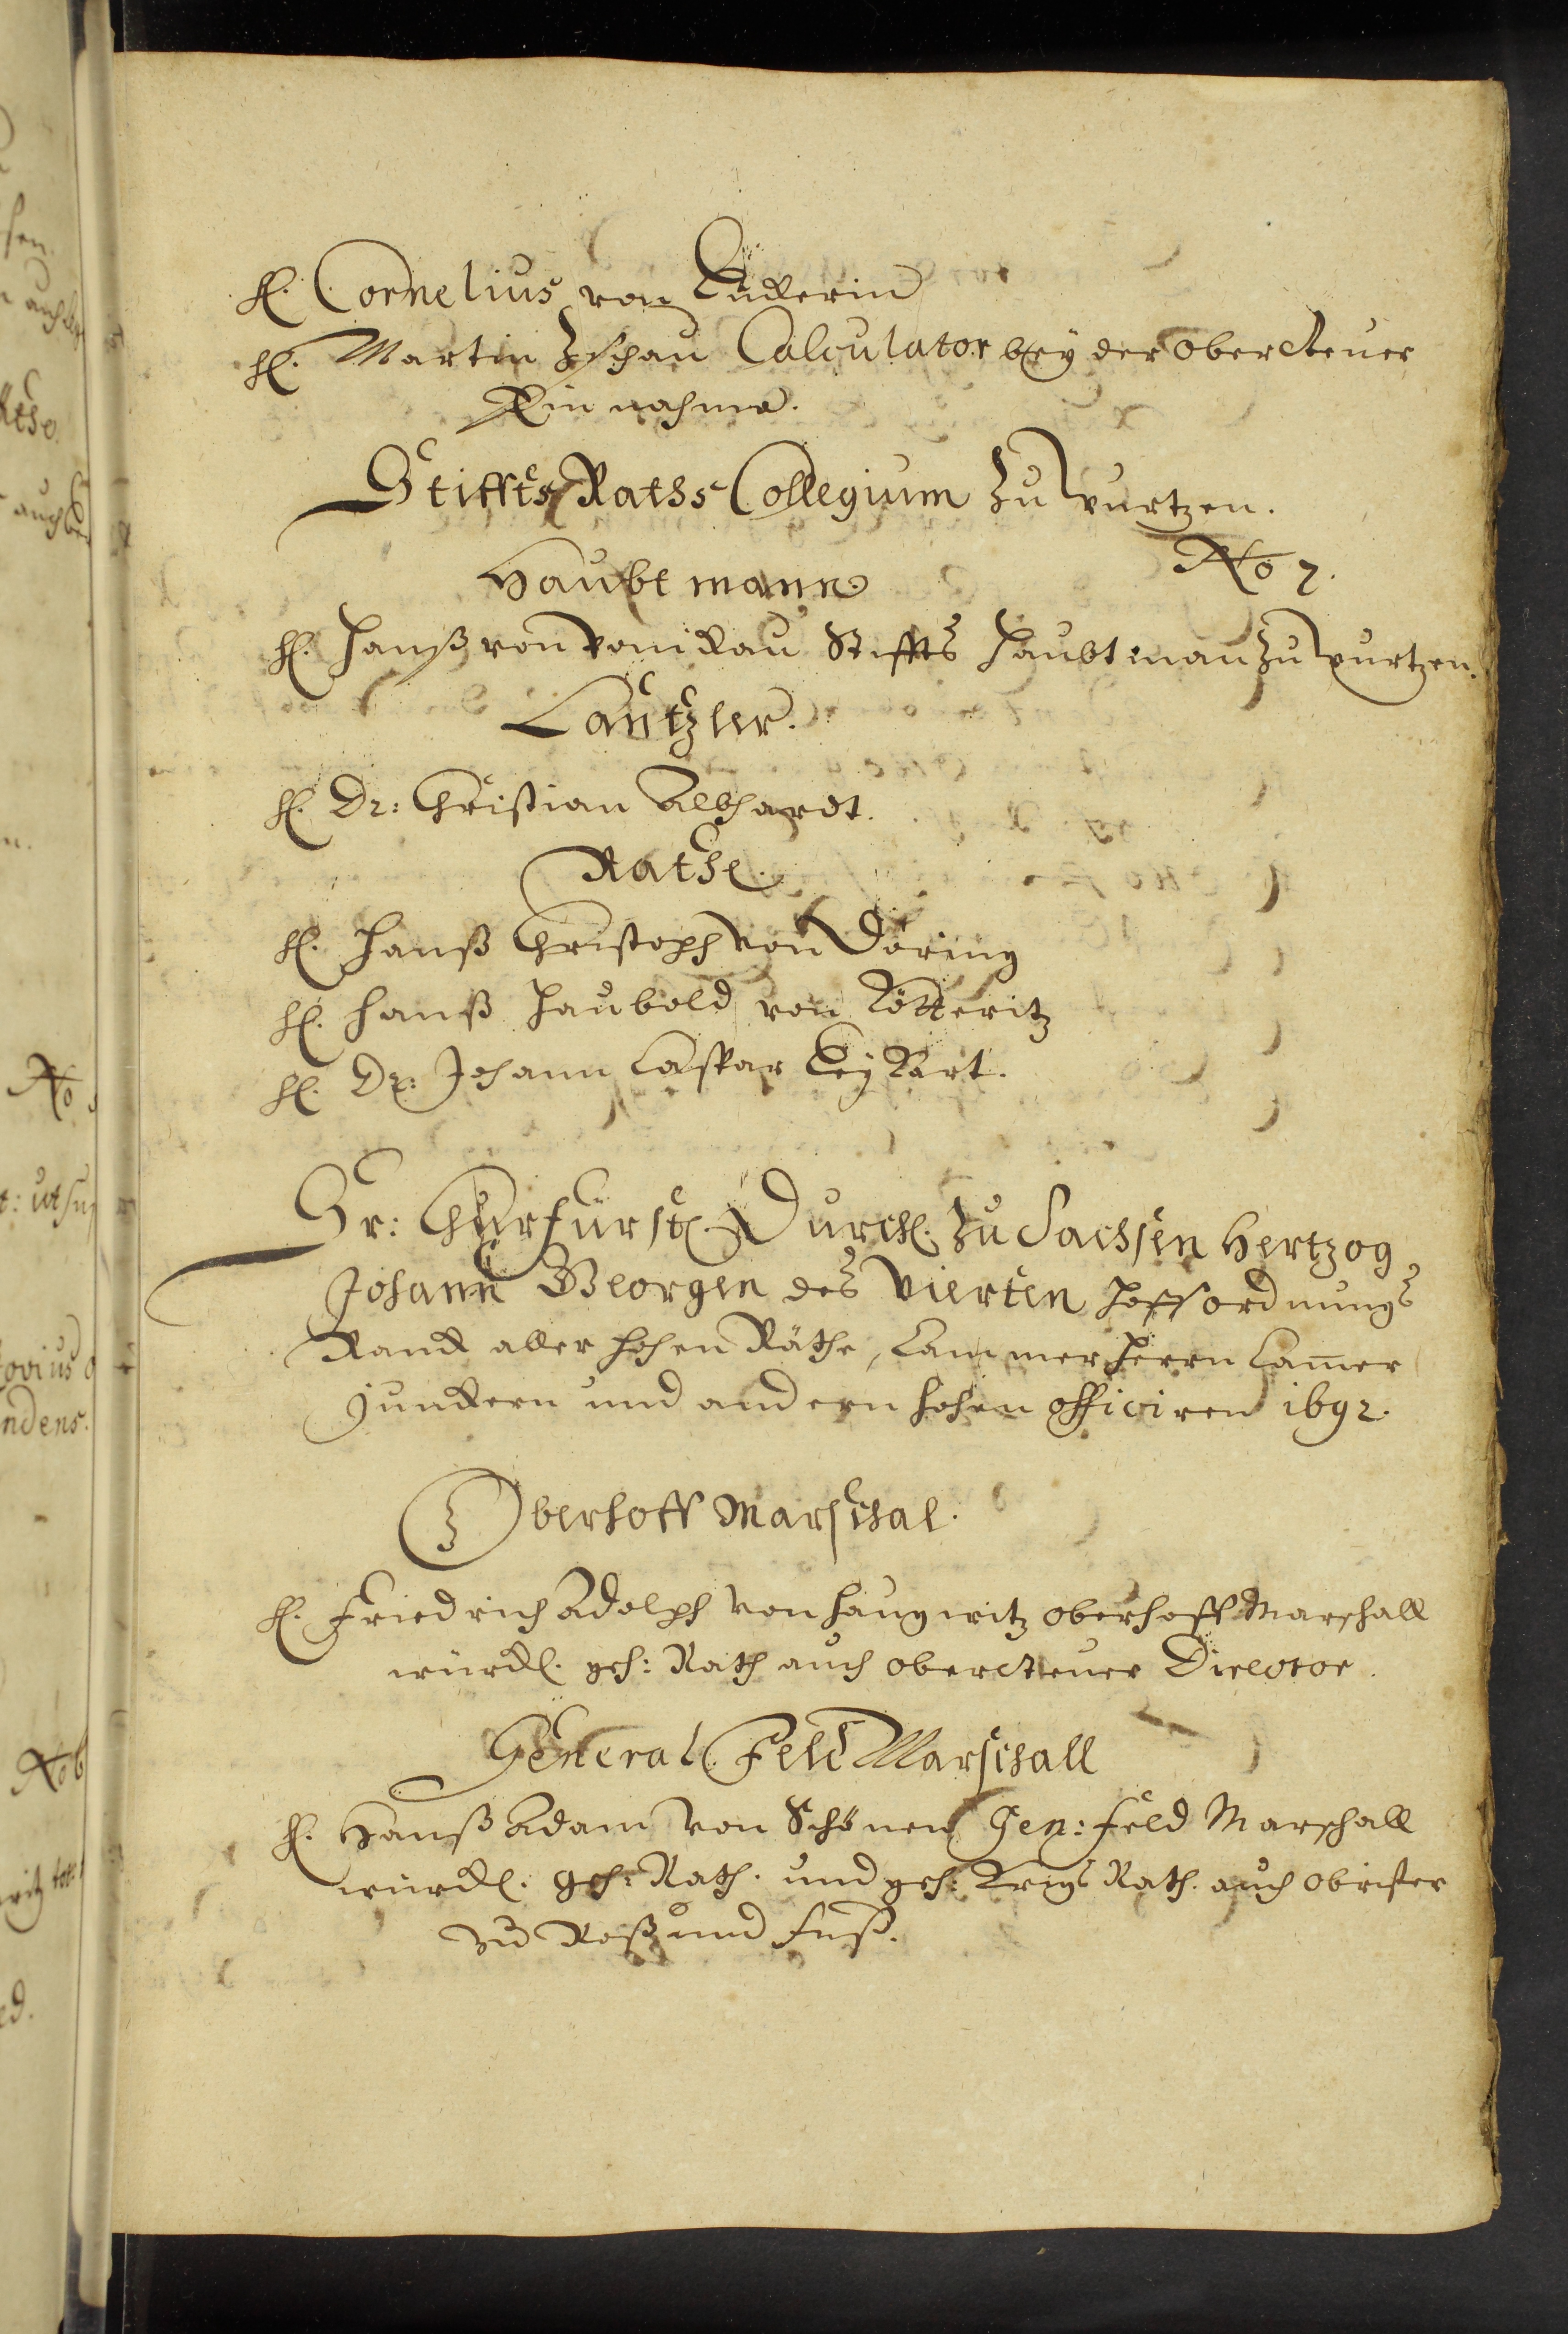 H. Cornelius von Lückerin
H. Martin Zschau Calculator bey der Obersteuer
Einnahme.
Stiffts Raths Collegium Zu Wurtzen.
No 7.
Haubtmann
H. Hanß von Ponickau Stiffts Haubtman zu Wurtzen.
Cantzler.
H. Dr: Christian Albhardt.
Rathe.
H. Hanß Christoph von Döring
H. Hanß Haubold von Kötteritz
H. Dr: Johann Caspar
Sr: Churfürstl. Durchl. Zu Sachsen Hertzog
Johann Georgen des Vierten Hoffordnungs
Rank aller hohen Räthe, Cammerherrn Camer
Junckern und andern hohen officiren 1692.
Oberhoff Marschal.
H. Friedrich Adolph von Haugwitz Oberhoff Marschall
würckl. geh: Rath auch Obersteuer Director.
General Feld Marschall
H. Hanß Adam von Schönen Gen: Feld Marschall
würckl. geh: Rath. und geh: Krigs Rath. auch Obrister
zu Roß und Fuß.